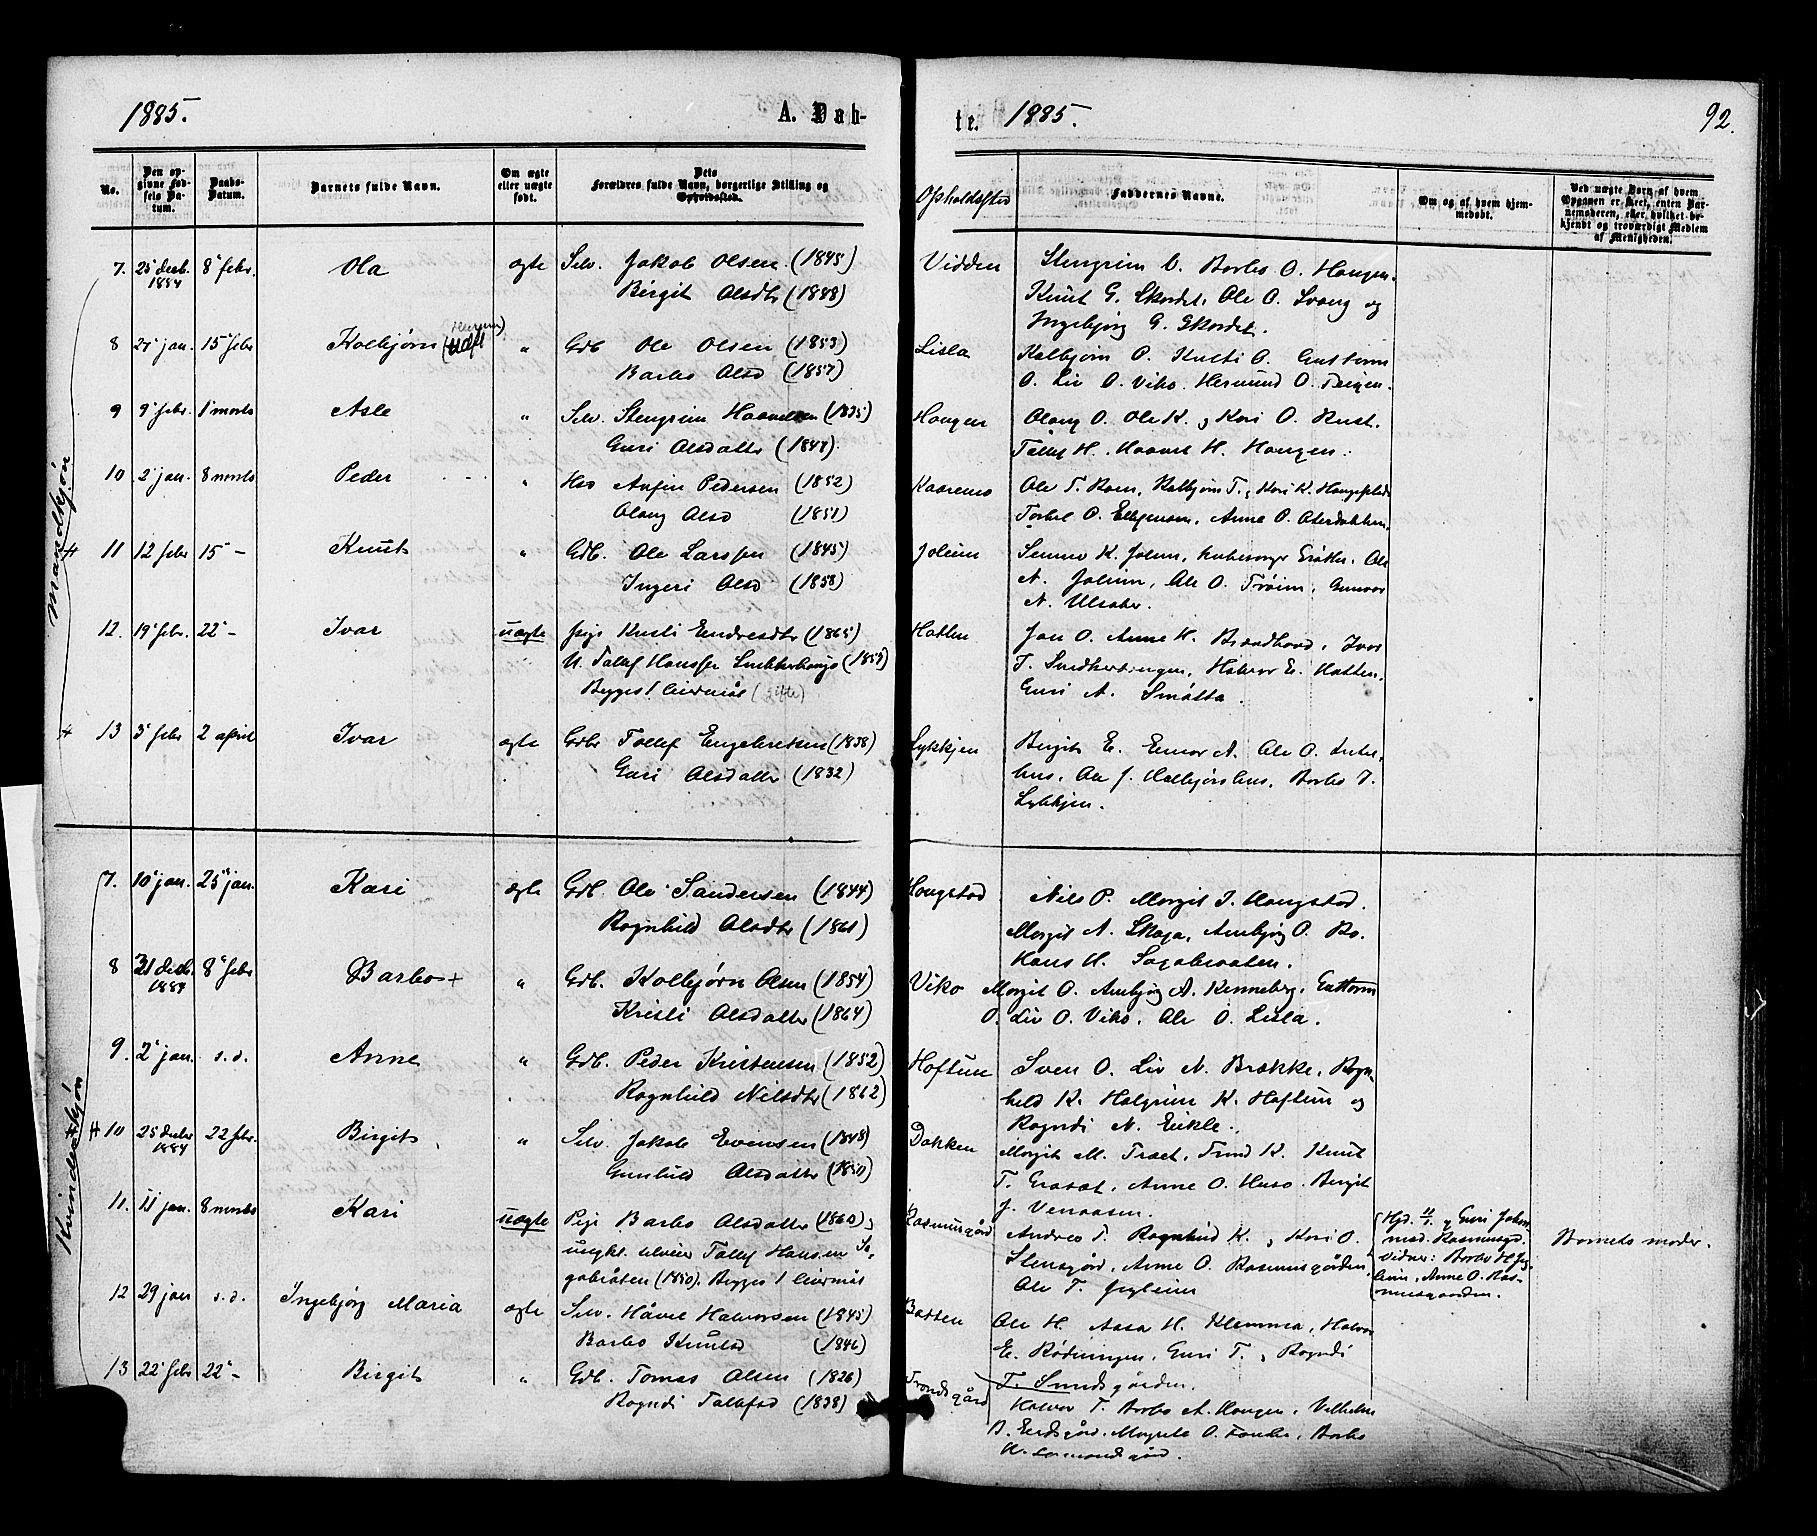 1885.
A. Døb-
te.
1885.
92.
No.
Den op-
givne Fød-
sels Da-
tum.
Daabs-
Datum.
Barnets fulde Navn.
Om ægte
eller uægte
født.
Dets
Forældres fulde Navn, borgerlige Stilling og
Opholdssted.
Opholdssted
Faddernes Navne.
Om og af hvem hjem-
medøbt.
Ved uægte Børn af hvem
Opgaven er skeet, enten Bar-
nemoderen, eller hvilket be-
kjendt og troværdigt Medlem
af Menigheden.
Mandkjøn
7. 25 decb. 1884 8 febr. Ola ægte Selv. Jakob Olsen (1845)
Birgit Olsdtr (1848)
Vidden
Stengrim O. Barbo O. Haugen.
Knut G. Skordet, Ole O. Svang og
Ingebjørg G. Skordet.
8 21 jan. 15 febr Kolbjørn " Gdb Ole Olsen (1853)
Barbo Olsd (1857)
Lisla
Kolbjørn O. Kristi O. Guttorm
O. Liv O. Viko. Hermund O. Teigen.
9 9 febr. 1 marts Asle " Selv. Stengrim Haavelsen (1835)
Guri Olsdatter (1847)
Haugen
Olaug O. Ole K. og Kari O. Rust.
Tollef H. Haavel H. Haugen.
10 2 jan. 8 marts Peder " Hss Anfin Pedersen (1852)
Olaug Olsd (1851)
Kaaremo
Ole T. Roen, Kolbjørn T. og Kari K. Haugesledt
Torkel O. Anne O.
11 12 febr 15 - Knut " Gdb. Ole Larssen (1845)
Ingeri Olsd (1858)
Joleim
K. Joleim, Ole
N. Joleim, Ole O. Trøim, Gunvor
N. Ulsaker.
12. 19 febr. 22 - Ivar uægte pige Kristi Endresdtr (1865)
U. Tollef Hanssen (1859)
Begges 1 leiermål (gifte)
Hatten
Jon O. Anne H. Brandhovd, Ivar
T. Halvor E. Hatten.
Guri A. Småtta.
13 3 febr 2 april Ivar ægte Gdbr Tollef Engebretsen (1838)
Guri Olsdatter (1832)
Lykkjen
Birgit E. Ole O.
hus, Ole J. Kolbjørshus, Barbo T.
Lykkjen.
Kvindekjøn
7. 10 jan. 25 jan. Kari ægte Gdb. Ole Sandersen (1844)
Ragnhild Olsdtr (1861)
Haugstad
Nils P. Margit T. Haugstad.
Margit A. Skaga, Ambjørg O. Ro.
Hans H. Sagabraaten.
8 31 decb. 1884 8 febr Barbo + " Gdb. Kolbjørn Olsen (1854)
Kristi Olsdatter (1864)
Viko
Margit O. Ambjørg A. Kenneberg, Guttorm
O. Liv O. Viko, Ole O. Lisla.
9. 2 jan. s.d. Anne " Gdb. Peder Kristensen (1852)
Ragnhild Nilsdtr (1862)
Hoftun
Sven O. Liv N. Brække, Ragn-
hild K. Halgrim K. Hoftun og
Ragndi N. Eikle.
10 25 decbr 1884 22 febr. Birgit " Selv Jakob Evensen (1848)
Gunhild Olsdatter (1850)
Dokken
Margit M. Træt, Trond K. Knut
T. Grasat, Anne O. Huso. Birgit
J. Venaasen.
11. 11 jan. 8 marts Kari uægte Pige Barbo Olsdatter (1860) og
ungk. Tollef Hansen Sa-
gabråten (1850). Begges 1 leiermål
Rasmusgård
Andres T. Ragnhild K. og Kari O.
Stensgård, Anne O. Rasmusgården,
Ole T. Grytheim
Hjd. 11/1 og Guri Johns
med. Rasmusgd.
Vidner: Barbo
Anne O. Ras-
musgaarden.
Barnets moder.
12 29 jan s.d. Ingebjørg Maria ægte Selv. Håvel Halvorsen (1845)
Barbo Knutsd (1846)
Botten
Ole H. Aasa H. Klemma, Halvor
E. Rødningen, Guri T. og Ragndi
T. Sundsgården.
13 22 febr 22 - Birgit " Gdb. Tomas Olsen (1826)
Ragndi Tollefsd (1838)
Trondsgård
Halvor T. Barbo A. Haugen. Vilhelm
B. Eridsgård, Margit O. Barbo